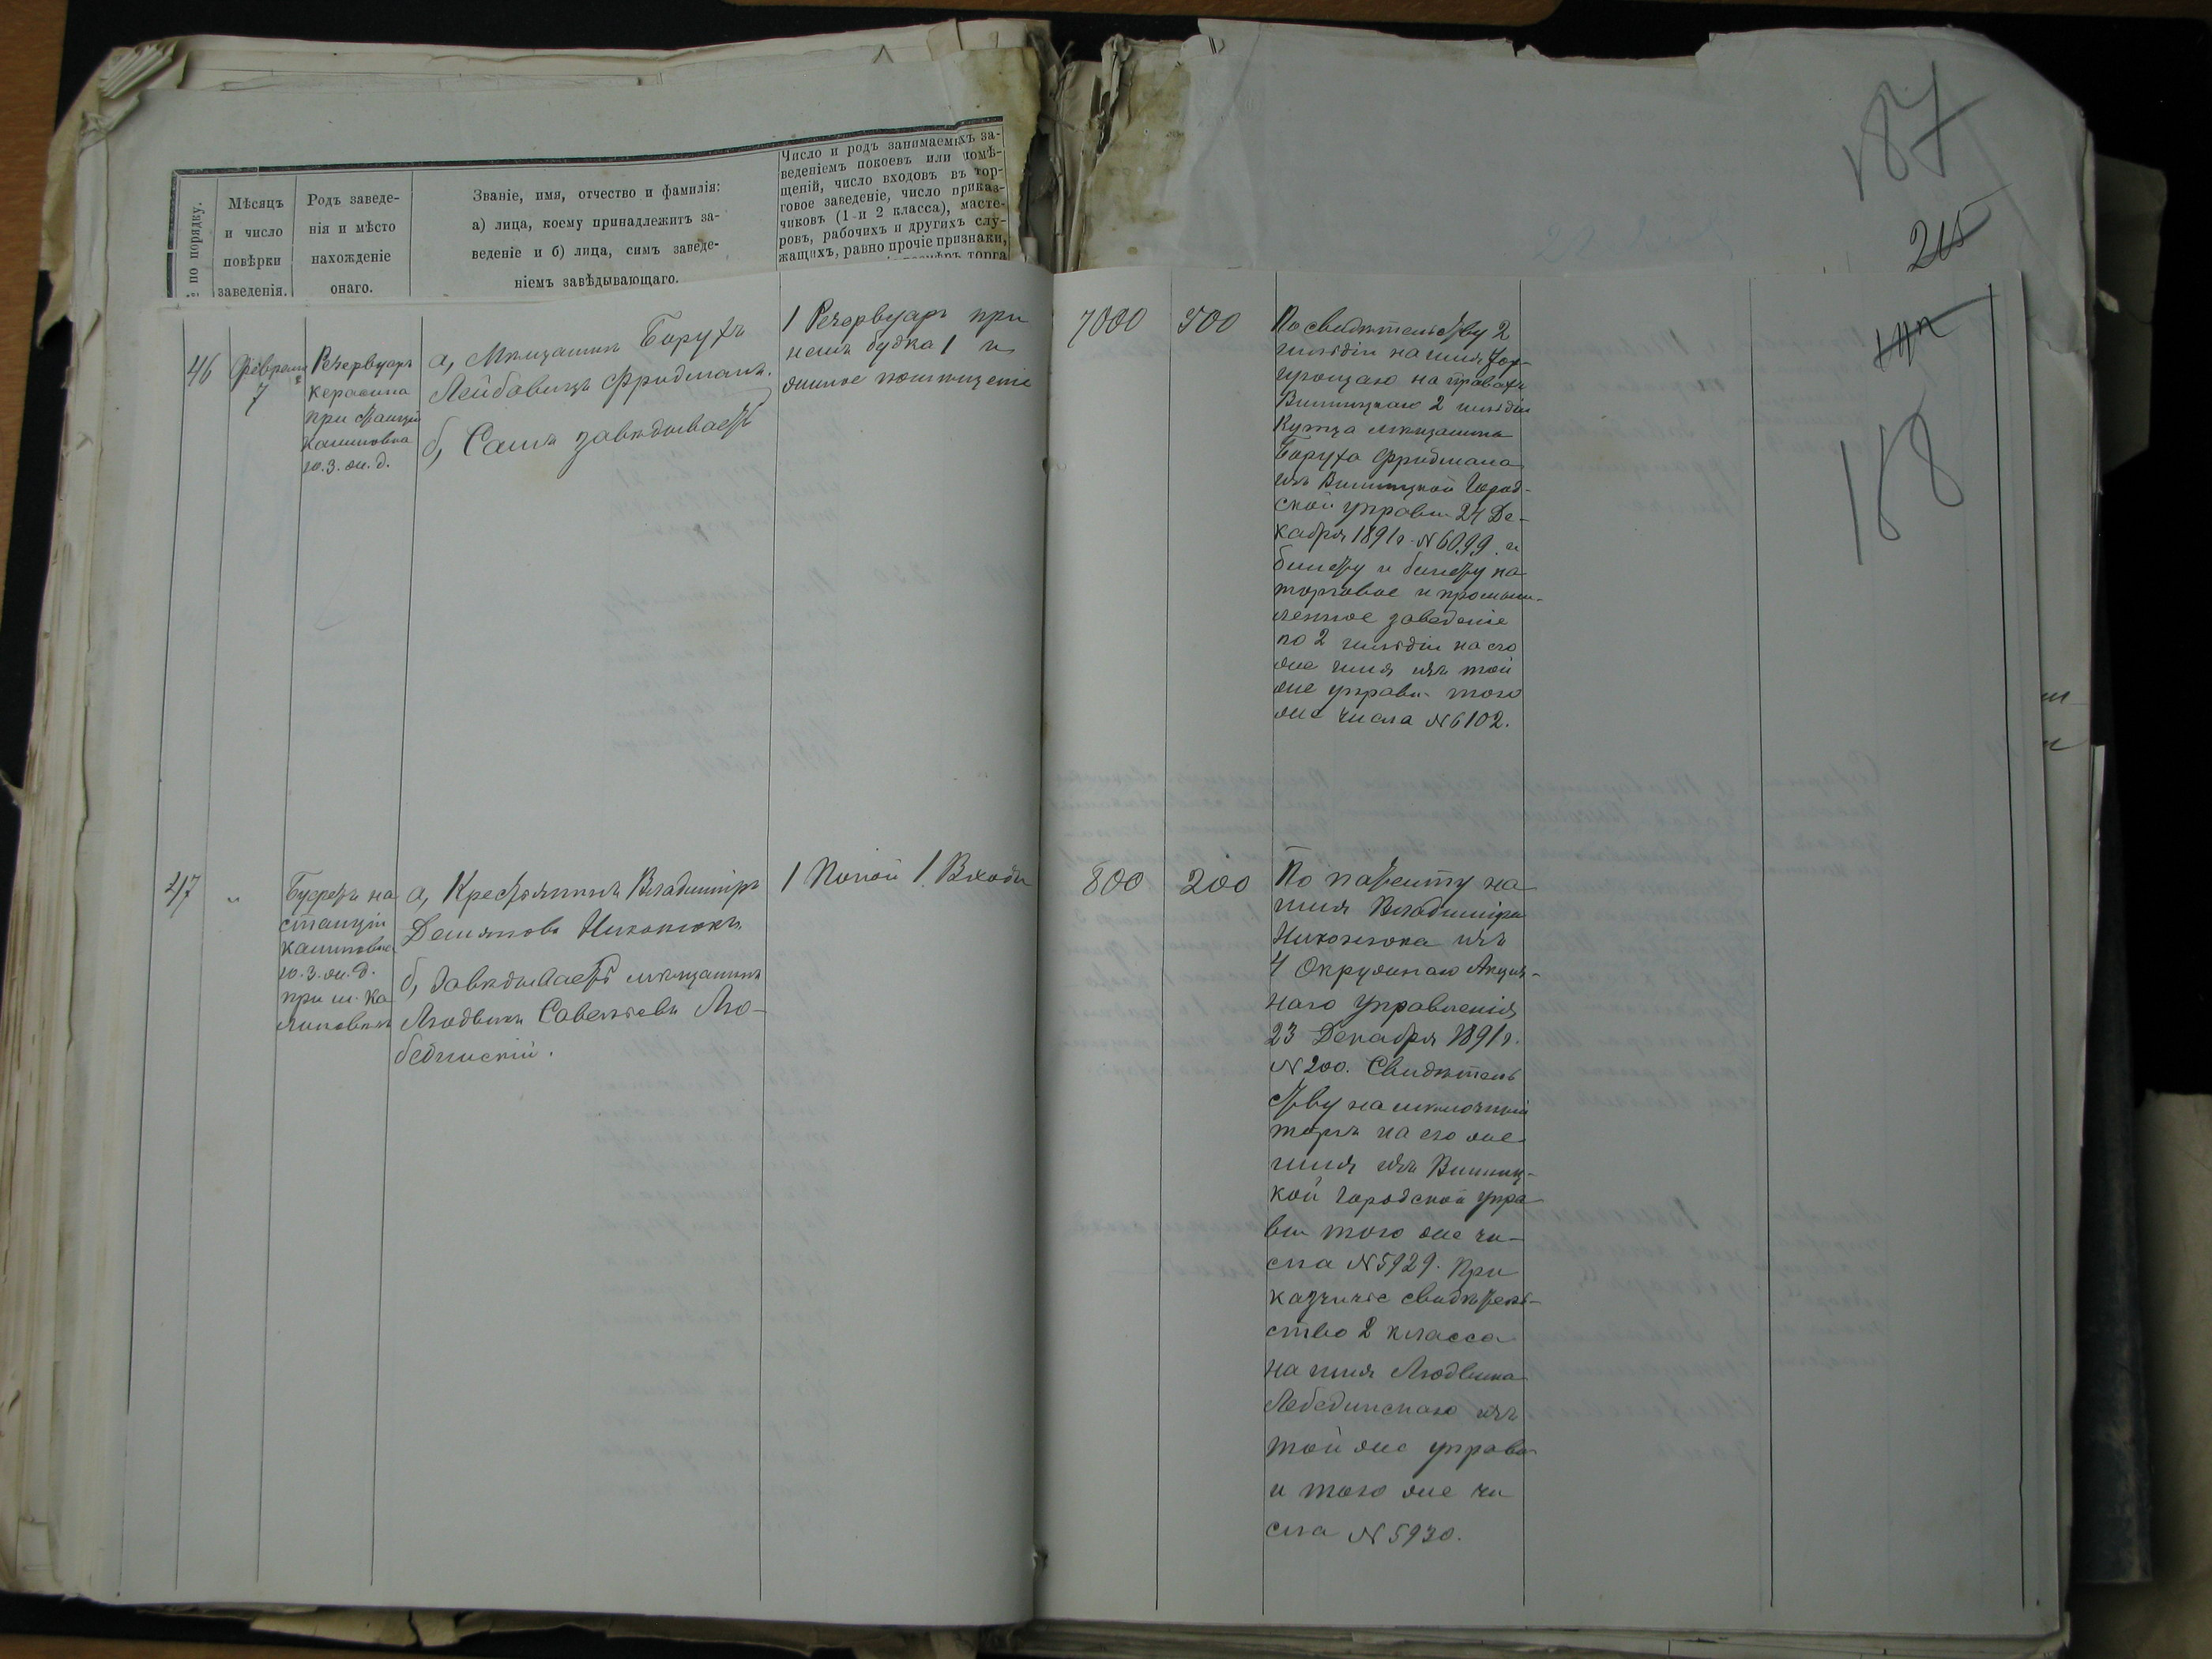 187
215
188
№ по порядку.
Мѣсяцъ
и число
повѣрки
заведенія.
Родъ заведе-
нія и мѣсто
нахожденіе
онаго.
Званіе, имя, отчество и фамилія:
а) лица, коему принадлежитъ за-
веденіе и б) лица, симъ заведе-
ніемъ завѣдывающаго.
Число и родъ занимаемыхъ за-
веденіемъ покоевъ или помѣ-
щеній, число входовъ въ тор-
говое заведеніе, число приказ-
чиковъ (1 и 2 класса), масте-
ровъ, рабочихъ и другихъ слу-
жащихъ, равно прочіе признаки,
торга
46
Февраля
7
Резервуаръ
керосина
при станціи
Калиновка
ю.з.ж.д.
а, Мѣщанинъ Борухъ
Лейбовичъ Фридманъ.
б, Самъ завѣдываетъ
1 Резервуаръ при
немъ будка 1 и
жилое помѣщеніе
7000
500
По свидѣтельству 2
гильдіи на имя
на правахъ
Винницкаго 2 гильдіи
Купца мѣщанина
Боруха Фридмана
изъ Винницкой Город-
ской управы 24 Де-
кабря 1891 г. N 6099. и
билету и билету на
торговое и промыш-
ленное заведеніе
по 2 гильдіи на его
же имя изъ той
же управы того
же числа N 6102.
47
"
Буфетъ на
станціи
Калиновка
ю.з.ж.д.
при м. Ка
линовкѣ
а, Крестьянинъ Владиміръ
Демьяновъ Никонюкъ.
б, Завѣдываетъ мѣщанинъ
Людвикъ Савельевъ Ло-
бединскій.
1 Покой 1 Входъ
800
200
По патенту на
имя Владиміра
Никонюка изъ
4 Окружнаго Акциз-
наго Управленія
23 Декабря 1891 г.
N 200. Свидѣтель
ству на мѣлочный
торгъ на его же
имя изъ Винниц-
кой городской упра
вы того же чи-
сла N 5929. При
казчичье свидѣтель-
ство 2 класса
на имя Людвика
Лебединскаго изъ
той же управы
и того же чи
сла N 5930.